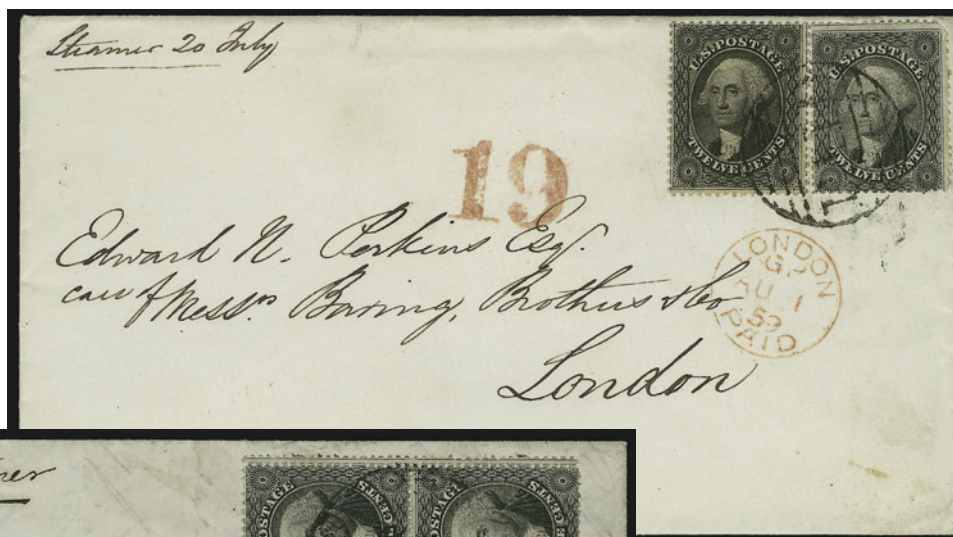 Steamer 20 July
U.S. POSTAGE
TWELVE CENTS
U.S. POSTAGE
TWELVE CENTS
19
Edward N. Perkins Esqr.
care of Messrs. Baring, Brothers & Co
London
LONDON
AU 1
59
PAID
POSTAGE
CENTS
POSTAG
E CENTS